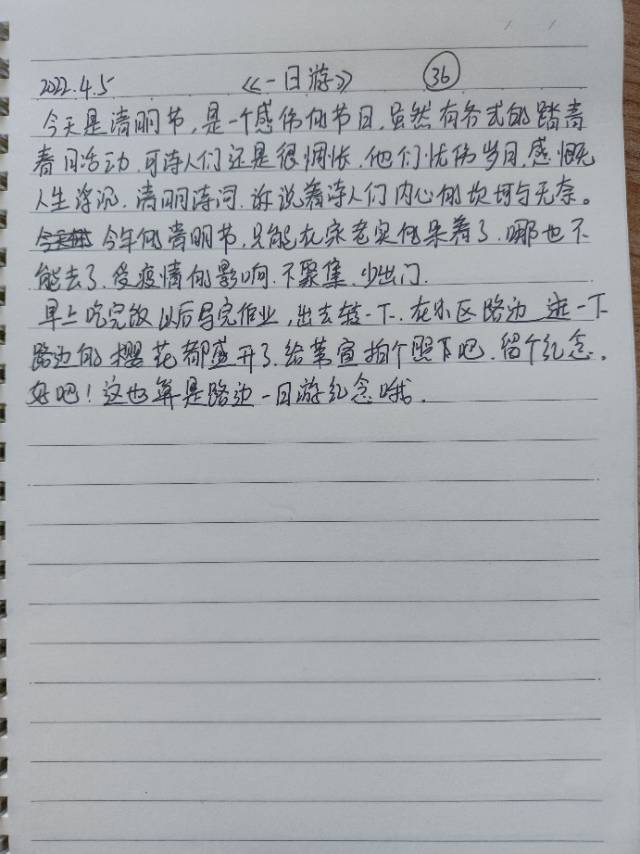 2022.4.5 《一日游》 36
今天是清明节,是一个感伤的节日,虽然有各式的踏青
春日活动,可诗人们还是很惆怅,他们忧伤岁月,感慨
人生浮沉,清明诗词,诉说着诗人们内心的坎坷与无奈。
今年的清明节,只能在家老实的呆着了,哪也不
能去了,受疫情的影响,不聚集,少出门.
早上吃完饭以后写完作业,出去转一下,在小区路边逛一下
路边的樱花都盛开了,给萱拍个照片吧,留个纪念。
好吧!这也算是路边一日游纪念哦.